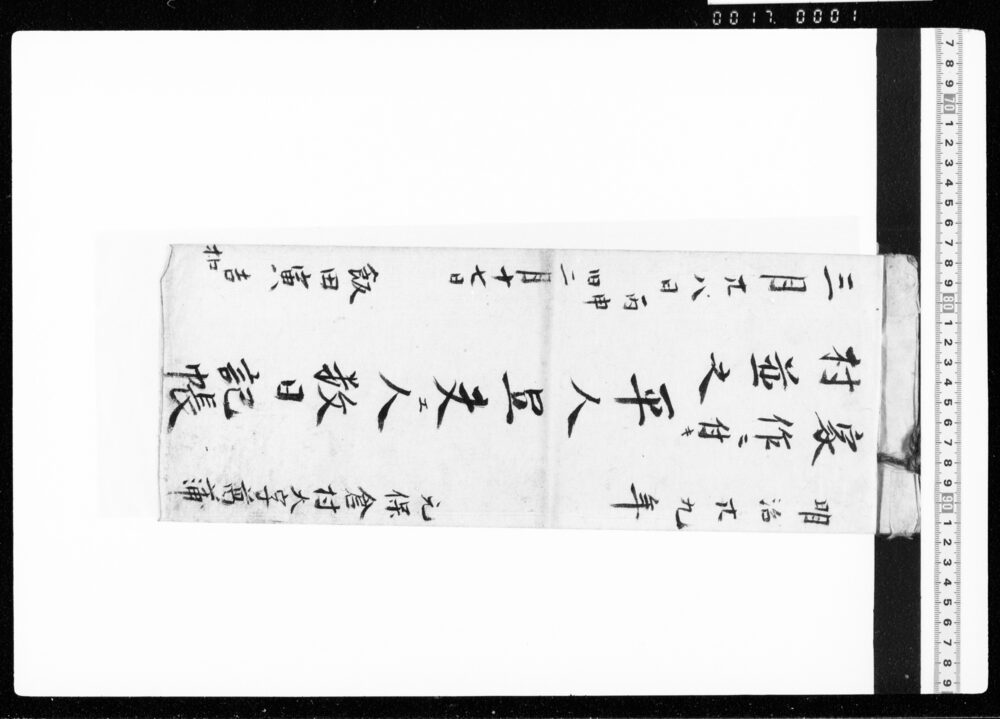 明治廿九年
元保倉村大字菖蒲
家作ニ付キ
村並夫平人
旦夫エ人数日記帳
三月廿八日
丙申
二月十七日
飯田寅吉
扣
0017 0001